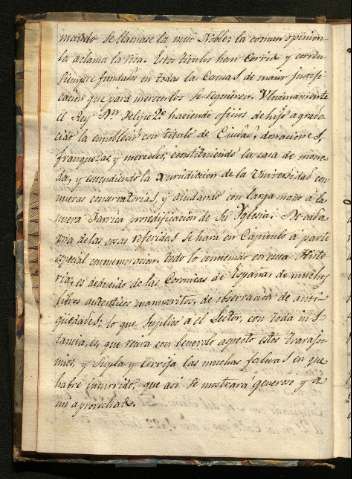 mandó se llamase la mui Noble: la comun opinion
la aclama la rica. Estos titulos han corrido y corren
siempre fundados en todas las Causas de maior justifi
cacion que para merecerlos se requieren. Ultimamente
el Rey Dn Felipe 2o haciendo oficios de hijo agrade
cido la ennobleció con titulo de Ciudad, donacion de
franquezas, y mercedes, constituiendo la casa de mone
da, y estendiendo la Jurisdiccion de la Universidad con
nuevas conservatorias, y aiudando con larga mano a la
nueva Fabrica predificacion de Su Yglesia: De cada
una de las cosas referidas se hará en Capitulo a parte
especial conmemoracion. todo lo contenido en esta Histo
ria, es deducido de las Coronicas de España, de muchos
libros autenticos manuscritos, de observacion de anti
guedades: lo que suplico a el Lector, con toda in S
tancia, es que reciva con benevolo aspecto estos travajos
mios, y supla y corrija las muchas faltas en que
habré incurrido, que asi se mostrará generoso y a
mi aprovechado.